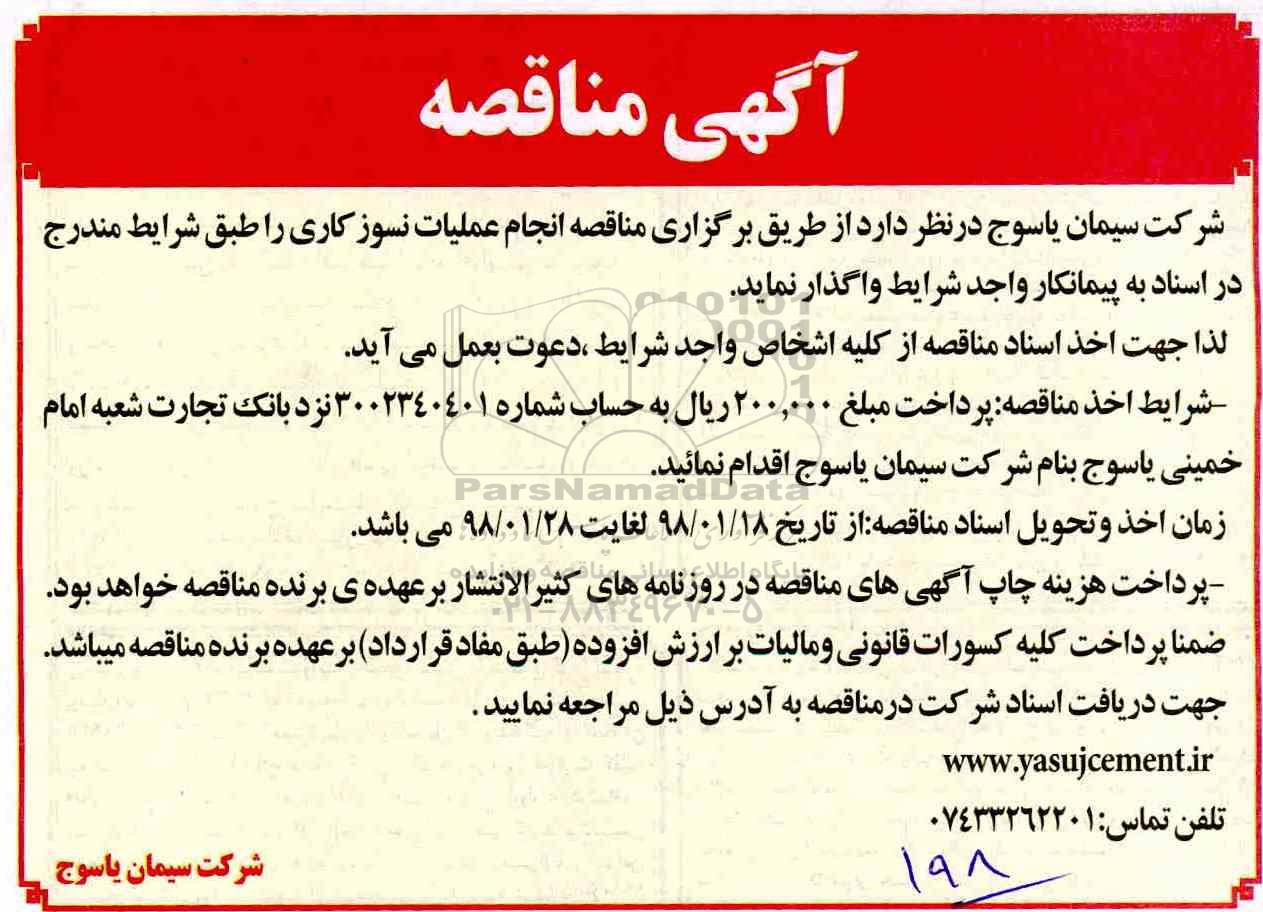 آگهی مناقصه
شرکت سیمان یاسوج درنظر دارد از طریق برگزاری مناقصه انجام عملیات نسوز کاری را طبق شرایط مندرج
در اسناد به پیمانکار واجد شرایط واگذار نماید.
لذا جهت اخذ اسناد مناقصه از کلیه اشخاص واجد شرایط ،دعوت بعمل می آید.
-شرایط اخذ مناقصه:پرداخت مبلغ ۲۰۰,۰۰۰ ریال به حساب شماره ۳۰۰۲۳٤۰٤۰۱ نزد بانک تجارت شعبه امام
خمینی یاسوج بنام شرکت سیمان یاسوج اقدام نمائید.
ParsNamadData
زمان اخذ وتحویل اسناد مناقصه:از تاریخ ۹۸/۰۱/۱۸ لغایت ۹۸/۰۱/۲۸ می باشد.
پایگاه اطلاع رسانی مناقصه و مزایده
-پرداخت هزینه چاپ آگهی های مناقصه در روزنامه های کثیرالانتشار بر عهده ی برنده مناقصه خواهد بود.
۰۲۱-۸۸۳٤۹٦۷۰-۵
ضمنا پرداخت کلیه کسورات قانونی ومالیات بر ارزش افزوده (طبق مفاد قرارداد) بر عهده برنده مناقصه میباشد.
جهت دریافت اسناد شرکت درمناقصه به آدرس ذیل مراجعه نمایید .
www.yasujcement.ir
تلفن تماس:۰۷٤۳۳۲٦۲۲۰۱
۱۹۸
شرکت سیمان یاسوج